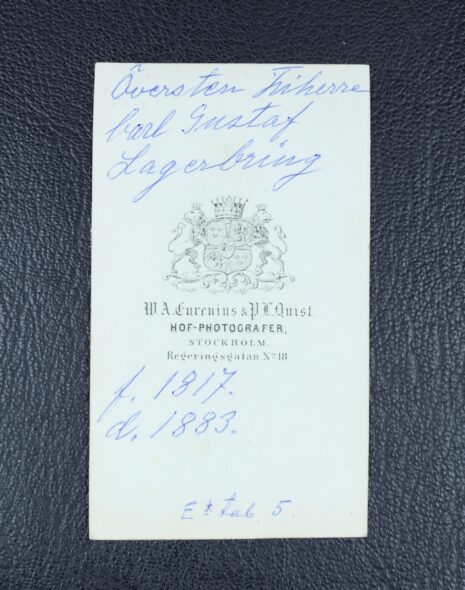 Översten Friherre
Carl Gustaf
Lagerbring
W. A. Eurenius & P. L. Quist.
HOF-PHOTOGRAFER,
STOCKHOLM.
Regeringsgatan No 18.
f. 1817.
d. 1883.
tab 5.